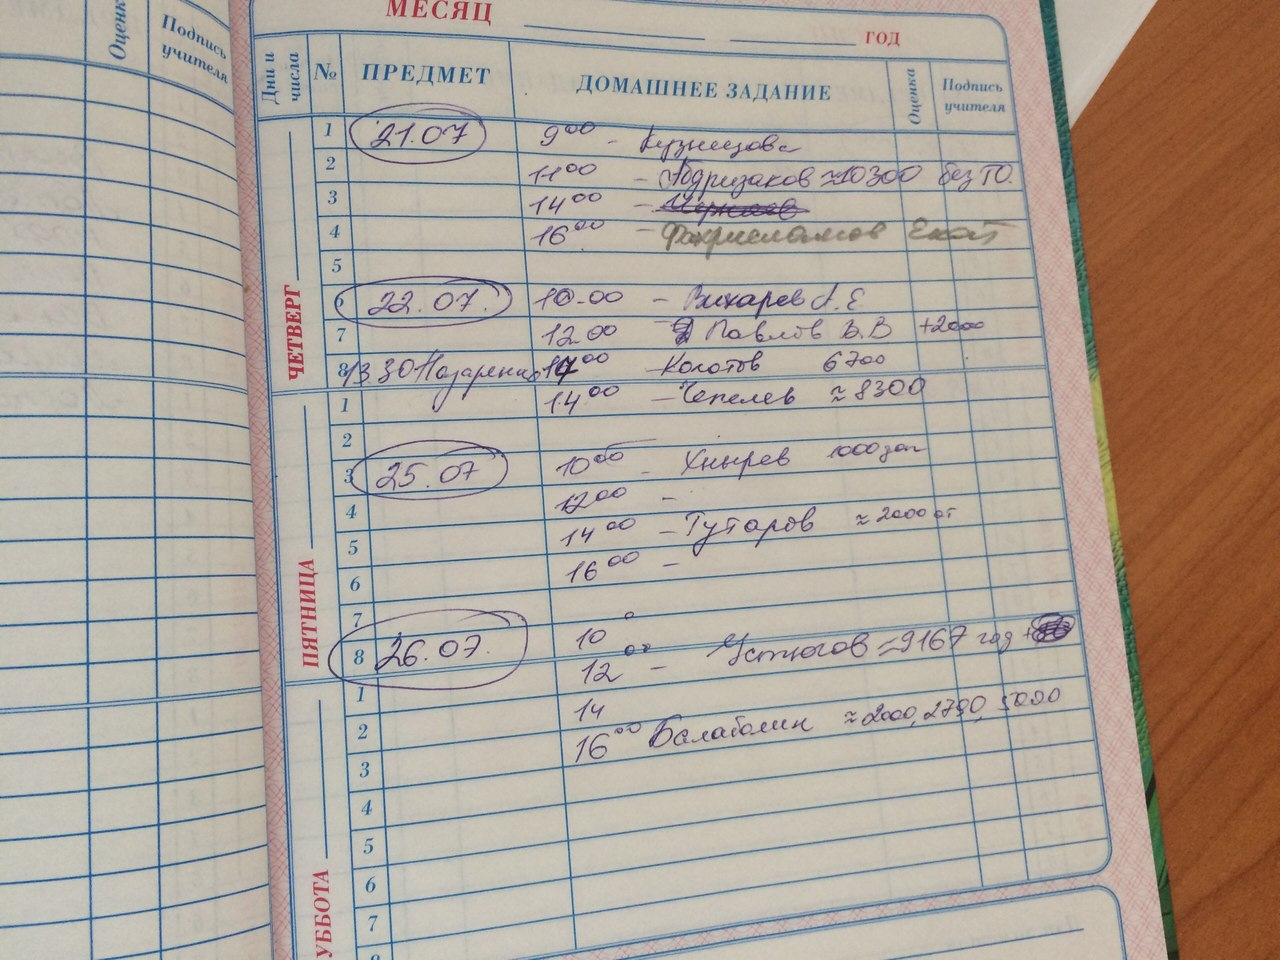 Оценка Подпись учителя
МЕСЯЦ ГОД
Дни и числа № ПРЕДМЕТ ДОМАШНЕЕ ЗАДАНИЕ Оценка Подпись учителя
ЧЕТВЕРГ
1 21.07 9 00 - Кузнецова
2 11 00 - ≈10300 без ТО.
3 14 00 -
4 16 00 - Фахрисламов Екат
5
6 22.07. 10.00 - Вихарев А.Е
7 12 00 Павлов В.В +2000
8 13 30 14 00 - Колотов 6700
ПЯТНИЦА
1 14 00 - Чепелев ≈ 8300
2
3 25.07 10 00 - Хнырев 1000 зап
4 12 00 -
5 14 00 - Тутаров ≈ 2000 от
6 16 00 -
7
8 26.07. 10 0
УББОТА
1 12 00 - Устюгов ≈9167 год +
2 14
3 16 00 Балаболин ≈ 2000, 2790, 5000
4
5
6
7
8